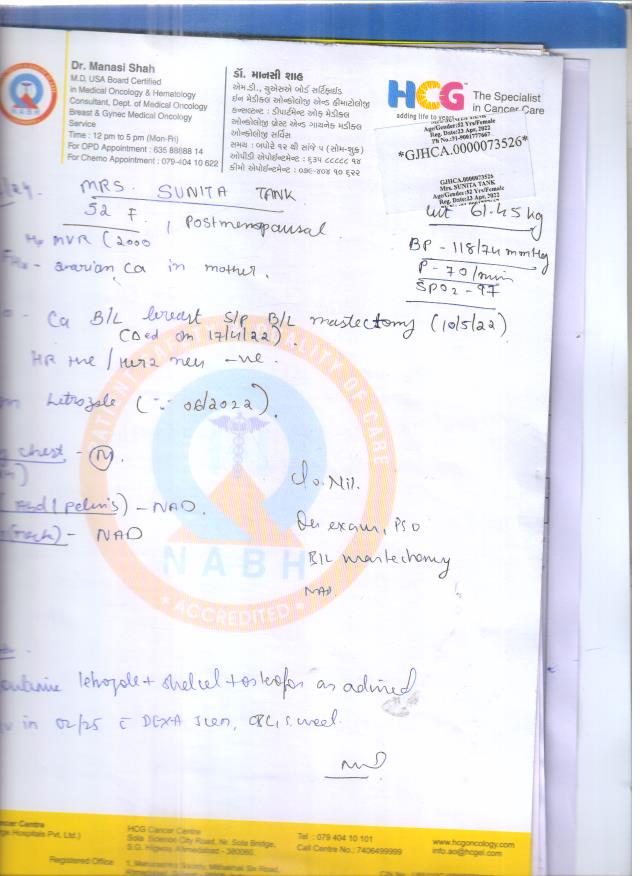 Dr. Manasi Shah
M.D. USA Board Certified
in Medical Oncology & Hematology
Consultant, Dept. of Medical Oncology
Breast & Gynec Medical Oncology
Service
Time : 12 pm to 5 pm (Mon-Fri)
For OPD Appointment : 635 88888 14
For Chemo Appointment : 079-404 10 622
ડૉ. માનસી શાહ
એમ.ડી., યુએસએ બોર્ડ સર્ટિફાઇડ
ઇન મેડીકલ ઓન્કોલોજી એન્ડ હીમાટોલોજી
કન્સલ્ટન્ટ : ડીપાર્ટમેન્ટ ઓફ મેડીકલ
ઓન્કોલોજી બ્રેસ્ટ એન્ડ ગાયનેક મેડીકલ
ઓન્કોલોજી સર્વિસ
સમય : બપોરે ૧૨ થી સાંજે ૫ (સોમ-શુક્ર)
ઓપીડી એપોઇન્ટમેન્ટ : ૬૩૫ ૮૮૮૮૮ ૧૪
કીમો એપોઇન્ટમેન્ટ : ૦૭૯-૪૦૪ ૧૦ ૬૨૨
HCG
adding life to years
The Specialist
in Cancer Care
Age/Gender:52 Yrs/Female
Reg. Date:23 Apr, 2022
*GJHCA.0000073526*
GJHCA.0000073526
Mrs. SUNITA TANK
Age/Gender:52 Yrs/Female
Reg. Date:23 Apr, 2022
NABH
MRS. SUNITA TANK
52 F. , Postmenopausal
wt 61.45 kg
MVR (2000
BP - 118/74 mmHg
- ovarian Ca in mother.
P - 70/min
SPO2 - 97
- Ca B/L breast S/P B/L mastectomy (10/5/22)
on 17/4/22).
HR +ve / Her2 neu -ve.
Letrozole ( 06/2022).
chest - N.
C/o. Nil.
/ pelvis) - NAD.
On exam, PSO
- NAD
B/L mastectomy
NAD.
letrozole + shelcal + osteofos as advised
in 02/25 c DEXA Scan,
PATIENT SAFETY & QUALITY OF CARE
NABH
ACCREDITED
HCG Cancer Centre
Sola Science City Road, Nr. Sola Bridge,
S.G. Highway, Ahmedabad - 380060.
Tel : 079 404 10 101
Call Centre No.: 7406499999
www.hcgoncology.com
info.ao@hcgel.com
Registered Office